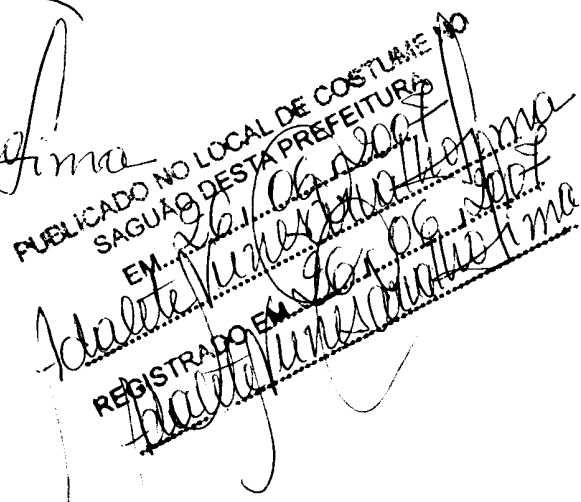 Lima
PUBLICADO NO LOCAL DE COSTUME NO
SAGUÃO DESTA PREFEITURA
EM 26 / 06 / 2007
Idalete Nunes Carvalho Lima
REGISTRADO EM 26 / 06 / 2007
Idalete Nunes Carvalho Lima